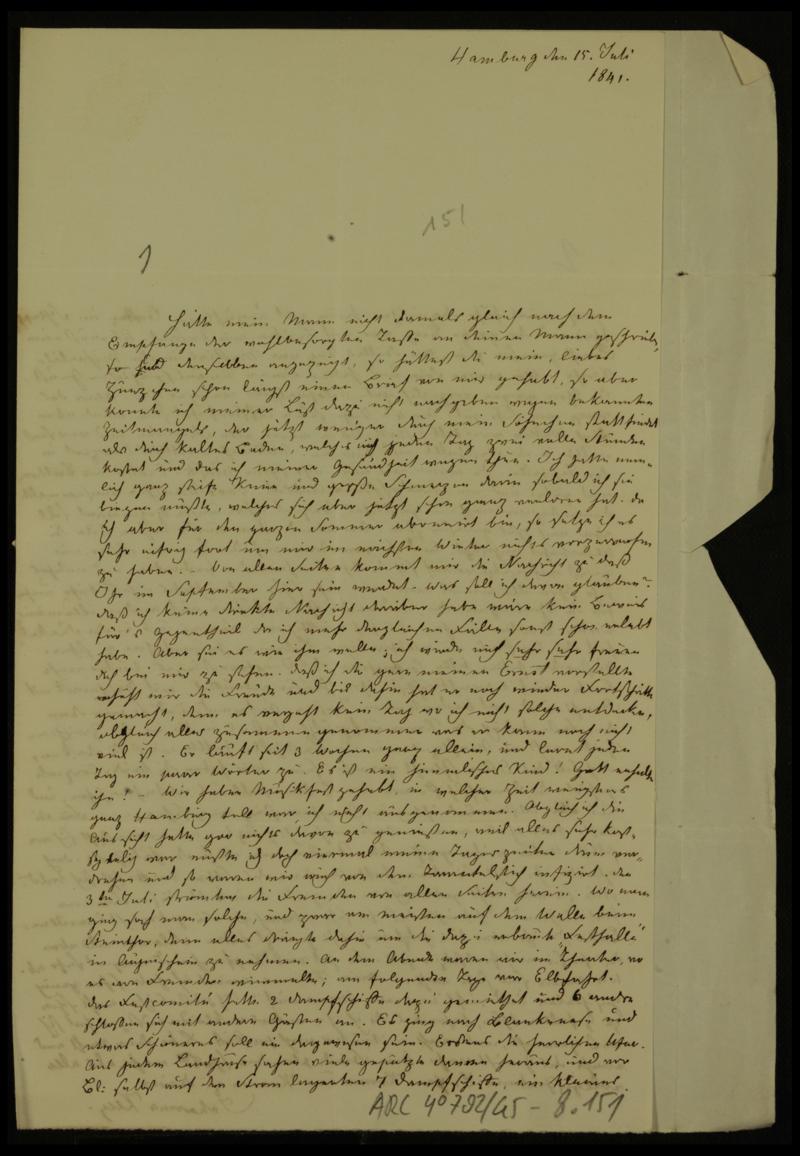 Hamburg den 15. Juli
1841.
151
1
Hätte mein Mann nicht damals gleich nach dem
Empfange der wohlbesorgten Tasse an deinen Mann geschrieben,
so und denselben angezeigt, so hättest du mein, liebes
schon längst einen Brief von mir gehabt, so aber
konnte ich meiner Lust dazu nicht nachgeben wegen bekannten
Zeitmangels, der jetzt weniger durch mein Söhnchen stattfindet
als durch kaltes Baden, welches mich jeden Tag zwei volle Stunden
kostet und das ich meiner Gesundheit wegen thue. Ich hatte nem-
lich ganz steife Knie und große Schmerzen darin sobald ich sie
biegen mußte, welches sich aber jetzt schon ganz verloren hat. Da
ich aber für den ganzen Sommer abonnirt bin, so setze ich es
sehr eifrig fort um mir im nächsten Winter nichts vorzuwerfen
zu haben. – Von allen Seiten kommt mir die Nachricht zu daß
Ihr im September hier sein werdet – was soll ich davon glauben?
daß ich keine direkte Nachricht darüber habe wäre kein Beweis
für's Gegentheil da ich mehr dergleichen Fälle sonst schon erlebt
habe. Aber sei es wie ihm wolle, ich würde mich sehr sehr freuen
dich bei mir zu sehen. daß ich dir gern meinen Ernst vorstellte
erhöht mir die Freude und bis dahin hat er noch wieder Fortschritte
gemacht, denn es vergeht kein Tag wo ich nicht solche entdecke,
obgleich alles zusammen genommen was er kann noch nicht
viel ist. Er läuft seit 3 Wochen ganz allein, und lernt jeden
Tag ein paar Wörter zu. Es ist ein himmlisches Kind! Gott erhalte
ihn! – Wir haben Musikfest gehabt, in welcher Zeit wenigstens
ganz Hamburg toll war, ich nicht ausgenommen. Obgleich ich die
Aussicht hatte gar nichts davon zu genießen, weil alles sehr kost-
spielig war mußte ich doch einmal meine Tageszeiten drum ver-
drehen und so waren wir auch von dem Tarantelstich infizirt. den
3ten Juli strömten die Fremden von allen Seiten herein. Wo man
ging sah man solche, und zwar am meisten auf dem Walle beim
Steinthor, denn alles drängte dahin um die dazu erbaute „Festhalle"
in Augenschein zu nehmen. An dem Abende waren wir im Theater, wo
es von Fremden wimmelte; am folgenden Tage war Elbfahrt.
das Festcomité hatte 2 Dampfschiffe dazu gemiethet und 6 andre
schlossen sich mit andern Gästen an. Es ging nach Blankenese und
etwas Schöneres soll nie dagewesen sein. Erstens die herrlichen Ufer.
Aus jedem Landhause sahen viele geputzte Damen heraus, und vor
Bl: selbst auf dem Strom lagerten 7 Dampfschiffe, ein kleines
ARC 4° 792/G5 – 8.151